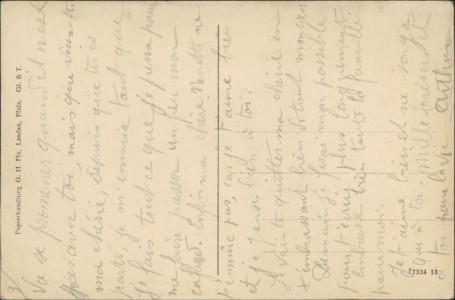 3)
va se promener quand il n'est
pas avec toi mais que veux-tu
ma chérie, depuis que tu es
partie je m'ennuie tant que
je fais tout ce que je peux pour
me faire passer un peu mon
cafard. Enfin ma chère Nénette ne
t'ennuie pas, car je t'aime bien
et je pense bien à toi.
Je vais te quitter ma chérie en
t'embrassant bien fort mon cœur
Demain je ferai mon possible
pour t'écrire plus longuement
Embrasse bien toute la famille
pour moi.
Je t'aime bien et ne songe
qu'à toi. Mille baisers et
Arthur
Papierhandlung G. H. Fix, Landau, Pfalz. Gl. & T.
F7334 13